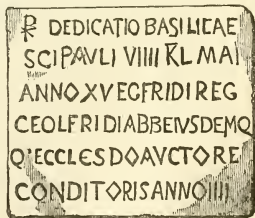 ☧ DEDICATIO BASILICAE
SCI PAVLI VIIII KL MAI
ANNO XV ECFRIDI REG
CEOLFRIDI ABB EIVSDEMQ
Q' ECCLES DO AVCTORE
CONDITORIS ANNO IIII